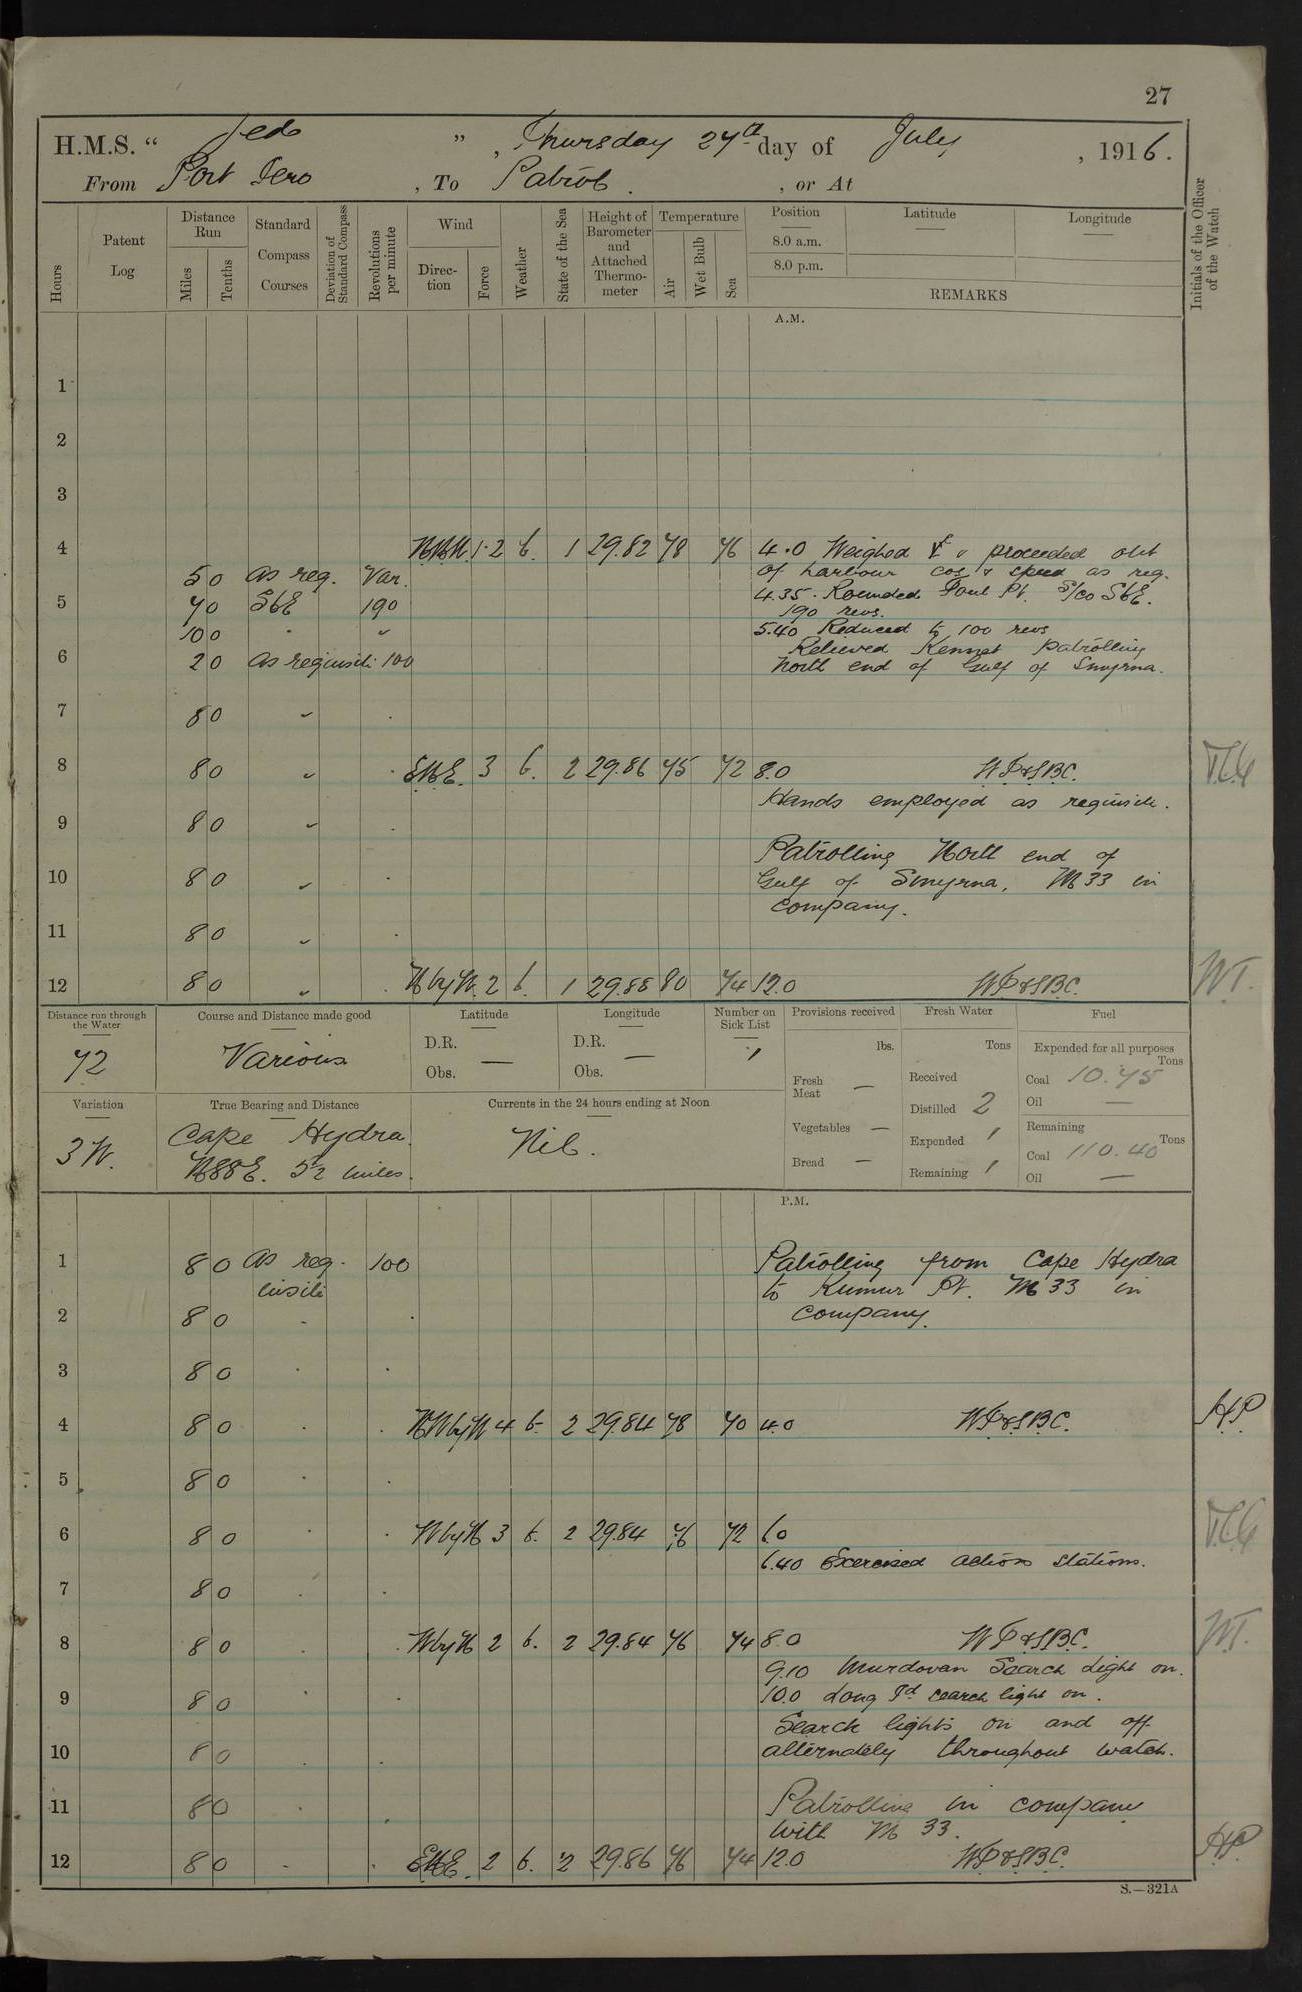 27
H.M.S. "Jed", Thursday 27th day of July, 1916.
From Port Iero, To Patrol., or At
Hours
Patent Log
Distance Run
Miles
Tenths
Standard Compass Courses
Deviation of Standard Compass
Revolutions per minute
Wind
Direction
Force
Weather
State of the Sea
Height of Barometer and Attached Thermometer
Temperature
Air
Wet Bulb
Sea
Position
8.0 a.m.
8.0 p.m.
Latitude
Longitude
REMARKS
Initials of the Officer of the Watch
A.M.
1
2
3
4 1·2 b. 1 29.82 78 76 4.0 Weighed & proceeded out
of harbour cos & speed as req.
5 0 as req. Var.
4.35. Rounded Foul Pt. S/co SbE.
5 7 0 SbE 190
190 revs.
10 0 " "
5.40 Reduced to 100 revs
Relieved Kennet patrolling
6 2 0 as requisite 100
North end of Gulf of Smyrna.
7 8 0 "
8 8 0 " 3 b. 2 29.86 75 72 8.0 WP&SBC.
Hands employed as requisite.
9 8 0 "
Patrolling North end of
10 8 0 " Gulf of Smyrna, M33 in
company.
11 8 0 "
12 8 0 " N by W. 2 b. 1 29.88 80 74 12.0 WP&SBC. W.T.
Distance run through the Water
72
Course and Distance made good
Various
Latitude
D.R. —
Obs.
Longitude
D.R. —
Obs.
Number on Sick List
1
Provisions received
lbs.
Fresh Meat —
Vegetables —
Bread —
Fresh Water
Tons
Received
Distilled 2
Expended 1
Remaining 1
Fuel
Expended for all purposes
Tons
Coal 10.75
Oil —
Remaining
Tons
Coal 110.40
Oil —
Variation
3 W.
True Bearing and Distance
Cape Hydra.
N88E. 52 miles.
Currents in the 24 hours ending at Noon
Nil.
P.M.
1 8 0 as req- 100 Patrolling from Cape Hydra
uisite to Kumur Pt. M33 in
2 8 0 company.
3 8 0
4 8 0 NW by W 4 b. 2 29.84 78 70 4.0 WP&SBC. H.P.
5 8 0
6 8 0 W by N 3 b. 2 29.84 76 72 6.0
6.40 Exercised action stations.
7 8 0
8 8 0 W by N 2 b. 2 29.84 76 74 8.0 WP&SBC. W.T.
9.10 Murdovan Search Light on.
9 8 0 10.0 Long Id search light on.
Search lights on and off
10 8 0 alternately throughout watch.
11 8 0 Patrolling in company
with M 33.
12 8 0 2 b. 2 29.86 76 74 12.0 WP&SBC. H.P.
S.—321A